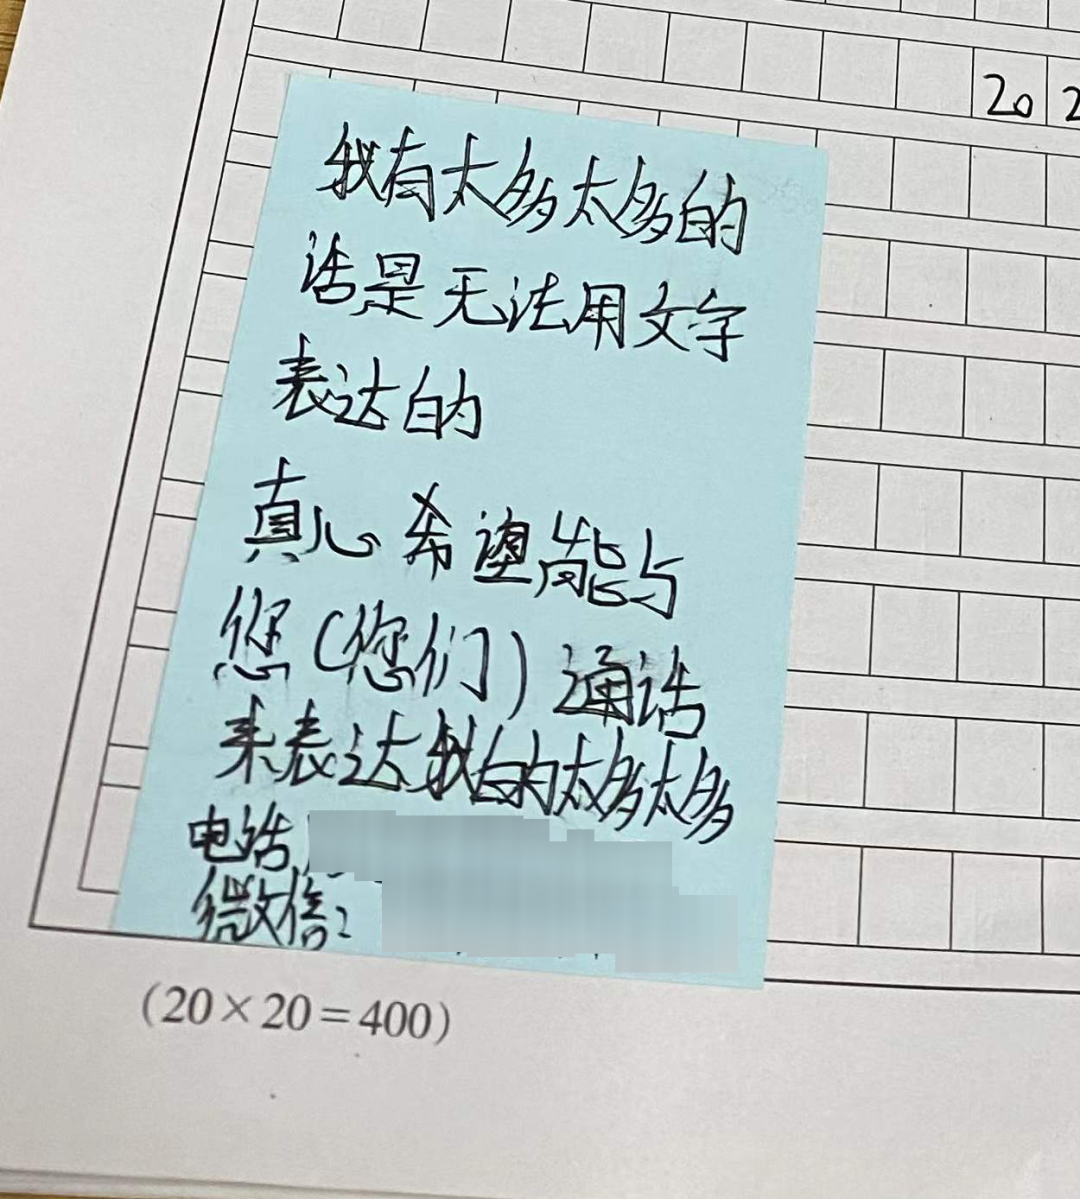 202
我有太多太多的
话是无法用文字
表达的
真心希望能与
您(您们)通话
来表达我的太多太多
电话
微信:
(20×20=400)